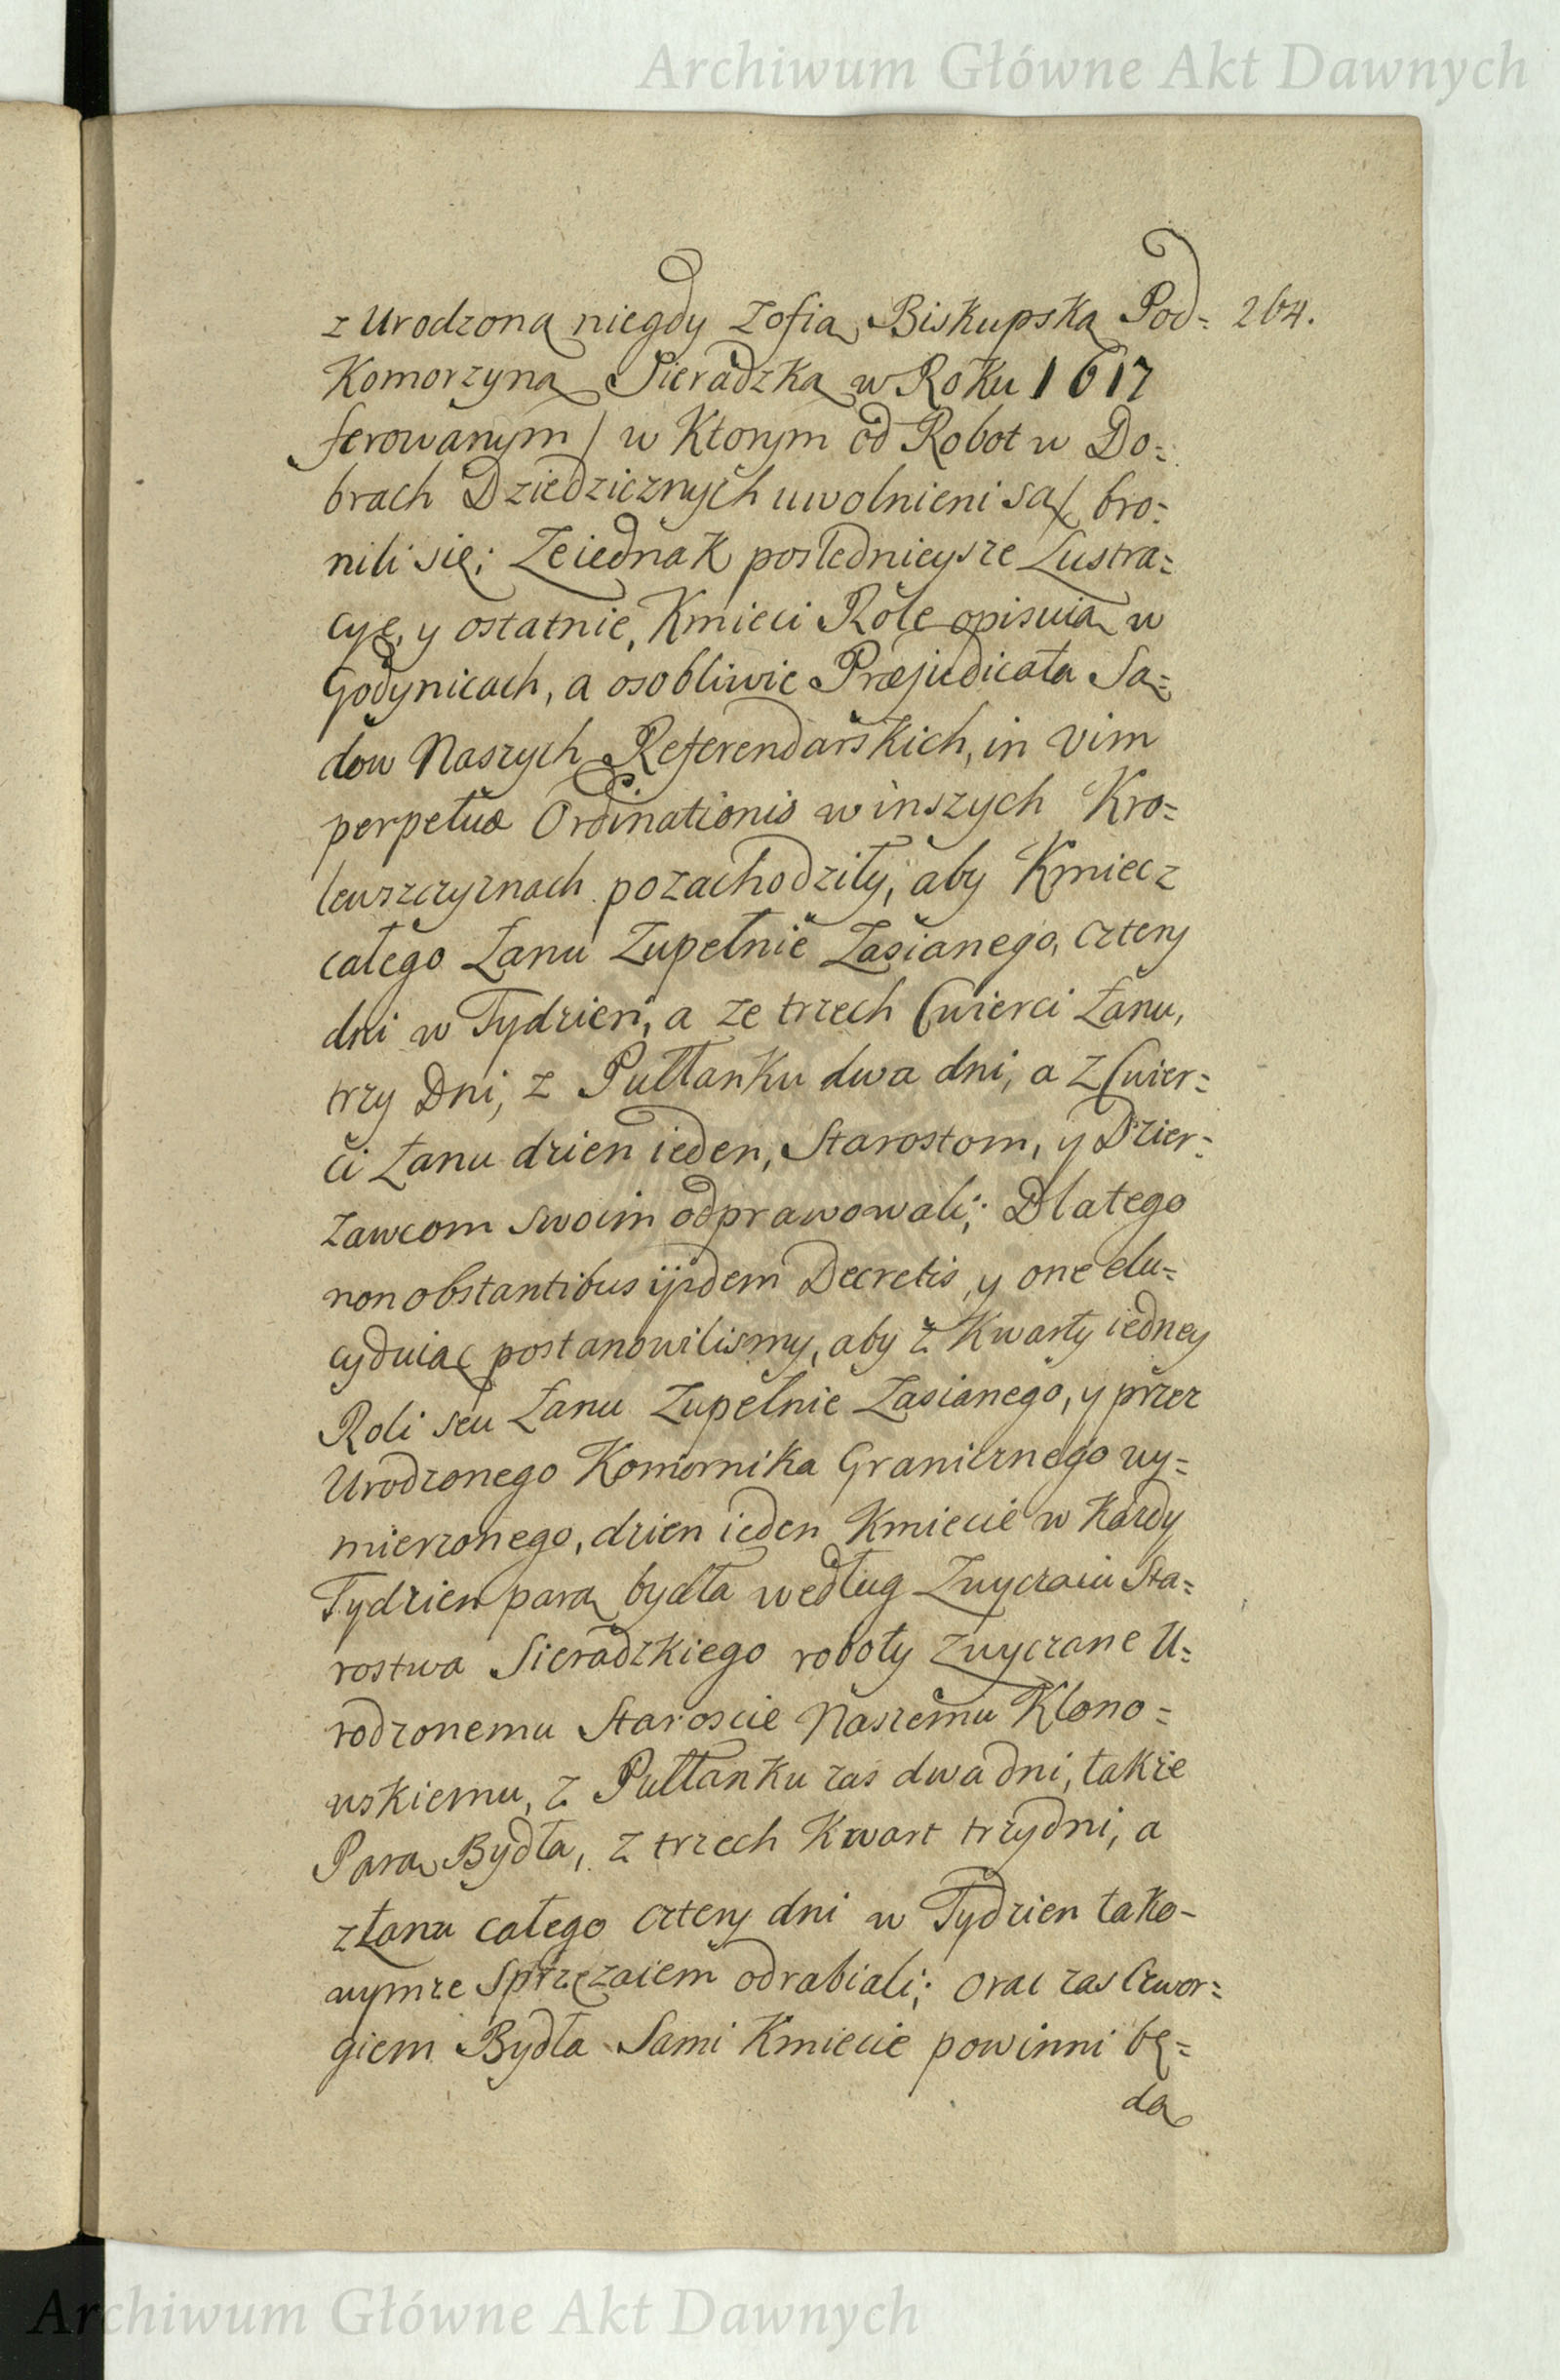 Archiwum Główne Akt Dawnych
z Urodzoną niegdy Zofią Biskupską Pod= 264.
Komorzyną Sieradzką w Roku 1617
ferowanym / w Ktorym od Robot w Do=
brach Dziedzicznych uwolnieni są / bro=
nili się; Ze iednak poslednieysze Lustra=
cye, y ostatnie, Kmieci Role opisuią w
Godynicach, a osobliwie Præjudicata Są=
dow Naszych Referendarskich, in vim
perpetuæ Ordinationis w inszych Kro=
lewszczyznach pozachodziły, aby Kmiec z
całego Łanu Zupełnie Zasianego, cztery
dni w Tydzien, a ze trzech Cwierci Łanu,
trzy Dni, z Pułłanku dwa dni, a z Cwier=
ci Łanu dzien ieden, Starostom, y Dzier=
zawcom swoim odprawowali; Dlatego
non obstantibus ijsdem Decretis, y one elu=
cyduiąc postanowilismy, aby z Kwarty iedney
Roli seu Łanu Zupełnie Zasianego, y przez
Urodzonego Komornika Granicznego wy=
mierzonego, dzien ieden Kmiecie w Kazdy
Tydzien parą bydła według Zwyczaiu Sta=
rostwa Sieradzkiego roboty zwyczane U=
rodzonemu Staroscie Naszemu Klono=
wskiemu, z Pułłanku zas dwa dni, takze
Parą Bydła, z trzech Kwart trzy dni, a
z Łanu całego cztery dni w Tydzien tako-
wymze Sprzęzaiem odrabiali; orac zas Czwor=
giem Bydła Sami Kmiecie powinni bę=
dą
Archiwum Główne Akt Dawnych